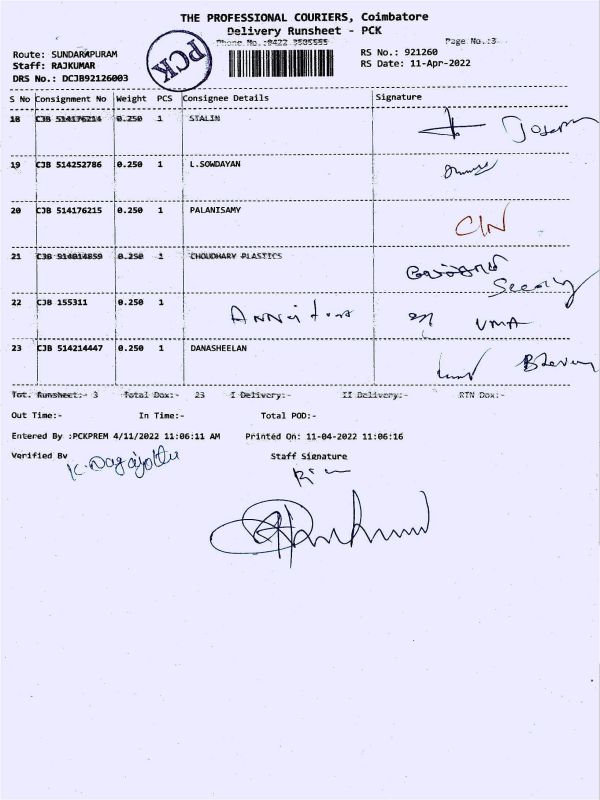 THE PROFESSIONAL COURIERS, Coimbatore
Delivery Runsheet - PCK
Phone No.:0422 3505555 Page No.:3
Route: SUNDARAPURAM RS No.: 921260
Staff: RAJKUMAR RS Date: 11-Apr-2022
DRS No.: DCJB92126003
PCK
S No Consignment No Weight PCS Consignee Details Signature
18 CJB 514176214 0.250 1 STALIN Joseph
19 CJB 514252786 0.250 1 L.SOWDAYAN
20 CJB 514176215 0.250 1 PALANISAMY CIN
21 CJB 514014859 0.250 1 CHOUDHARY PLASTICS
22 CJB 155311 0.250 1 UMA
23 CJB 514214447 0.250 1 DANASHEELAN
Tot. Runsheet:- 3 Total Dox:- 23 I Delivery:- II Delivery:- RTN Dox:-
Out Time:- In Time:- Total POD:-
Entered By :PCKPREM 4/11/2022 11:06:11 AM Printed On: 11-04-2022 11:06:16
Verified By Staff Signature